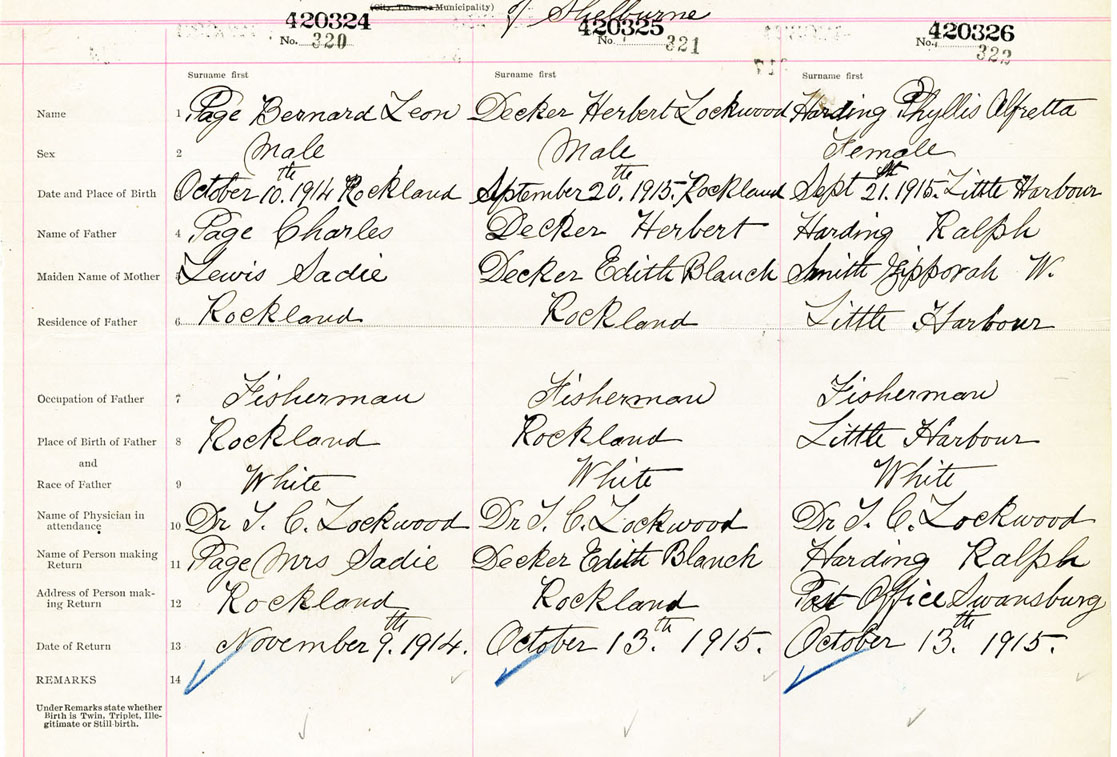 (City, Town or Municipality) of Shelburne
420324 420325 420326
No. 320 No. 321 No. 322
Surname first Surname first Surname first
Name 1 Page Bernard Leon Decker Herbert Lockwood Harding Phyllis Alfretta
Sex 2 Male Male Female
Date and Place of Birth October 10th. 1914 Rockland September 20th. 1915. Rockland Sept 21st. 1915. Little Harbour
Name of Father 4 Page Charles Decker Herbert Harding Ralph
Maiden Name of Mother 5 Lewis Sadie Decker Edith Blanch Smith Zipporah W.
Residence of Father 6 Rockland Rockland Little Harbour
Occupation of Father 7 Fisherman Fisherman Fisherman
Place of Birth of Father 8 Rockland Rockland Little Harbour
and
Race of Father 9 White White White
Name of Physician in
attendance 10 Dr T. C. Lockwood Dr T. C. Lockwood Dr T. C. Lockwood
Name of Person making
Return 11 Page Mrs Sadie Decker Edith Blanch Harding Ralph
Address of Person mak-
ing Return 12 Rockland Rockland Post Office Swansburg
Date of Return 13 November 9th. 1914. October 13th. 1915. October 13th. 1915.
REMARKS 14
Under Remarks state whether
Birth is Twin, Triplet, Ille-
gitimate or Still-birth.